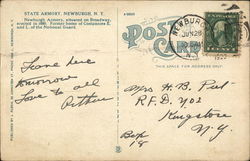 STATE ARMORY, NEWBURGH, N. Y.
Newburgh Armory, situated on Broadway,
erected in 1880. Former home of Companies E
and L. of the National Guard.
POST
CARD
THIS SPACE FOR ADDRESS ONLY
NEWBURGH
JUN 28
N.Y.
Leave here
tomorrow
Love to all
Arthur
Mrs H. B. Puel
R.F.D. No 2
Kingston
N.Y.
Box
18